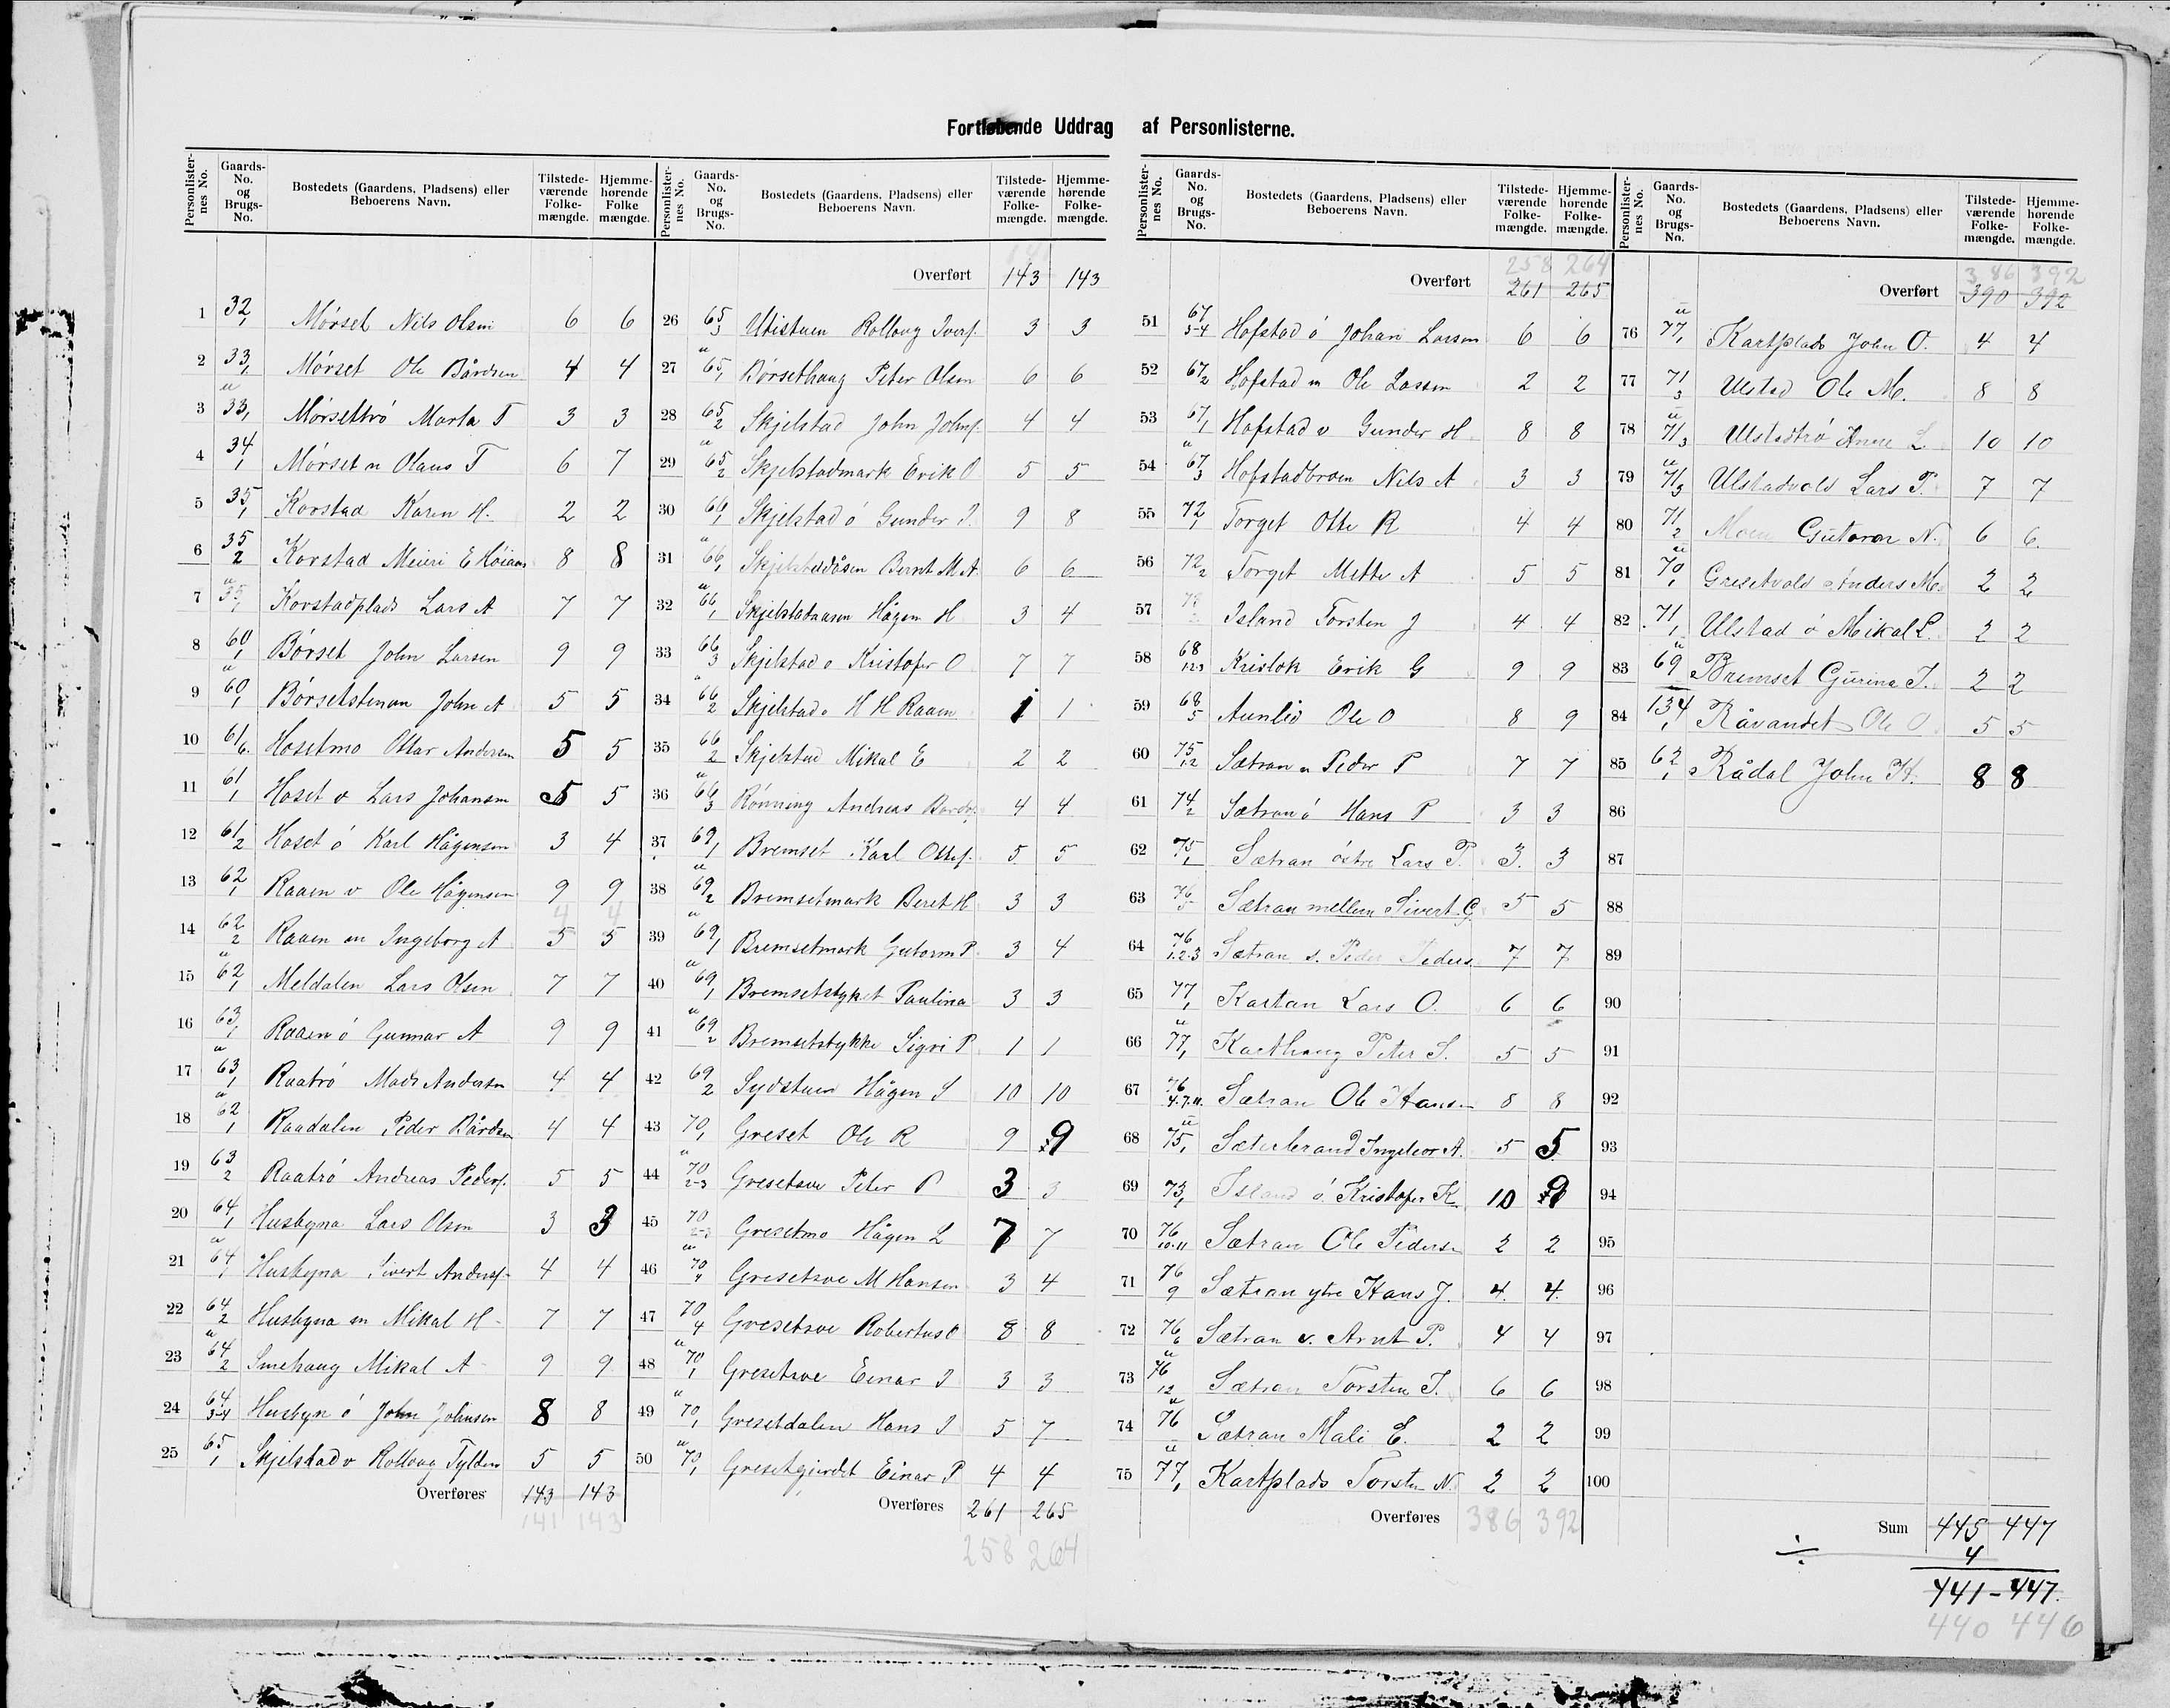 Fortløbende Uddrag af Personlisterne.
Personlisternes No. Gaards-No. og Brugs-No. Bostedets (Gaardens, Pladsens) eller Beboerens Navn. Tilstedeværende Folkemængde. Hjemmehørende Folkemængde.
1 32/1 Mørset Nils Olsen 6 6
2 33/1 Mørset Ole Bårdsen 4 4
3 u 33/1 Mørsettrø Marta T 3 3
4 34/1 Mørset n Olaus T 6 7
5 35/1 Korstad Karen H. 2 2
6 35/2 Korstad Meieri E Höiaas 8 8
7 u 35/1 Korstadplads Lars A 7 7
8 60/1 Börset John Larsen 9 9
9 u 60/1 Börsetstenan John A 5 5
10 61/6 Hosetmo Ottar Andersen 5 5
11 61/1 Hoset v Lars Johansen 5 5
12 61/2 Hoset ö Karl Hågensen 3 4
13 62/1 Raaen v Ole Hågensen 9 9
4 4
14 62/2 Raaen m Ingeborg A 5 5
15 u 62/1 Meldalen Lars Olsen 7 7
16 63/1 Raaen ö Gunnar A 9 9
17 u 63/1 Raatrö Mads Andersen 4 4
18 u 62/1 Raadalen Peder Bårdsen 4 4
19 63/2 Raatrö Andreas Peders. 5 5
20 64/1 Husbyna Lars Olsen 3 3
21 u 64/1 Husbyna Sivert Anders. 4 4
22 64/2 Husbyna m Mikal H 7 7
23 u 64/2 Smehaug Mikal A 9 9
24 64/3-4 Husbyn ö John Johnsen 8 8
25 65/1 Skjelstad v Rollaug Tylden 5 5
Overføres 143 143
141 143
Overført 143 143
26 65/3 Utistuen Rollaug Ivers. 3 3
27 u 65/1 Börsethaug Peter Olsen 6 6
28 65/2 Skjelstad John Johns. 4 4
29 u 65/2 Skjelstadmark Erik O 5 5
30 66/1 Skjelstad ö Gunder I. 9 8
31 u 66/1 Skjelstadåsen Bernt M A 6 6
32 u 66/1 Skjelstadaasen Hågen H 3 4
33 66/3 Skjelstad ö Kristofer O 7 7
34 66/2 Skjelstad ö H H Raaen 1 1
35 66/2 Skjelstad Mikal E 2 2
36 u 66/3 Rönning Andreas Bards. 4 4
37 69/1 Bremset Karl Ottes. 5 5
38 u 69/2 Bremsetmark Beret H 3 3
39 u 69/1 Bremsetmark Gutorm P 3 4
40 u 69/1 Bremsetstyket Paulina 3 3
41 u 69/2 Bremsetstykke Sigri P 1 1
42 69/2 Sydstuen Hågen S 10 10
43 70/1 Greset Ole R 9 9
44 u 70/2-3 Gresetsve Peter P 3 3
45 70 Gresetmo Hågen L 7 7
46 u 70/4 Gresetsve M Hansen 3 4
47 70/4 Gresetsve Robertus O 8 8
48 u 70/1 Gresetsve Einar I 3 3
49 u 70/1 Gresetdalen Hans I 5 7
50 u 70/1 Gresetgjerdet Einar P 4 4
Overføres 261 265
258 264
258 264
Overført 261 265
51 67/3-4 Hofstad ö Johan Larsen 6 6
52 67/2 Hofstad m Ole Lassen 2 2
53 67/1 Hofstad v Gunder H 8 8
54 u 67/3 Hofstadbroen Nils A 3 3
55 72/1 Torget Otte R 4 4
56 72/2 Torget Mette A 5 5
57 Island Torsten J 4 4
58 68/1.2.3 Krislok Erik G 9 9
59 68/5 Aunlid Ole O 8 9
60 75/1.2 Sætran n Peder P 7 7
61 74/2 Sætran ö Hans P 3 3
62 75/1 Sætran östre Lars P. 3 3
63 76/5 Sætran mellem Sivert G. 5 5
64 76/1.2.3 Sætran s. Peder Peders. 7 7
65 77/1 Kartan Lars O. 6 6
66 u 77/1 Karthaug Peter S. 5 5
67 76/4.7.11 Sætran Ole Hansen 8 8
68 u 75/1 Sæterbrand Ingebor A. 5 5
69 73/1 Island ö. Kristofer K. 10 9
70 76/10.11 Sætran Ole Pedersen 2 2
71 76/9 Sætran ytre Hans J. 4 4
72 76/6 Sætran v. Arnt P. 4 4
73 u 76/12 Sætran Torsten T. 6 6
74 u 76 Sætran Mali E. 2 2
75 u 77/1 Kartplads Torsten N. 2 2
Overføres 386 392
386 392
Overført 390 392
76 u 77/1 Kartplads John O. 4 4
77 71/3 Ulstad Ole M. 8 8
78 u 71/3 Ulstadtrö Anne L. 10 10
79 u 71/3 Ulstadvold Lars P. 7 7
80 71/2 Moen Gutorm N. 6 6
81 u 70/1 Gresetvold Anders M. 2 2
82 71/1 Ulstad ö Mikal L. 2 2
83 u 69 Bremset Gurina T. 2 2
84 134/1 Råvandet Ole O 5 5
85 62/1 Rådal John H. 8 8
86
87
88
89
90
91
92
93
94
95
96
97
98
99
100
Sum 445 447
÷ 4
441 - 447
440 446